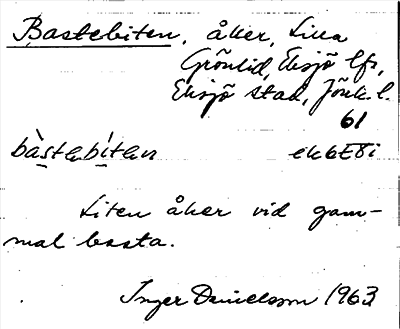 Bastebiten, åker, Lilla
Grönlid, Eksjö lfs,
Eksjö stad, Jönk. l.
61
bàstebìten ek6E8i
Liten åker vid gam-
mal basta.
Inger Danielsson 1963